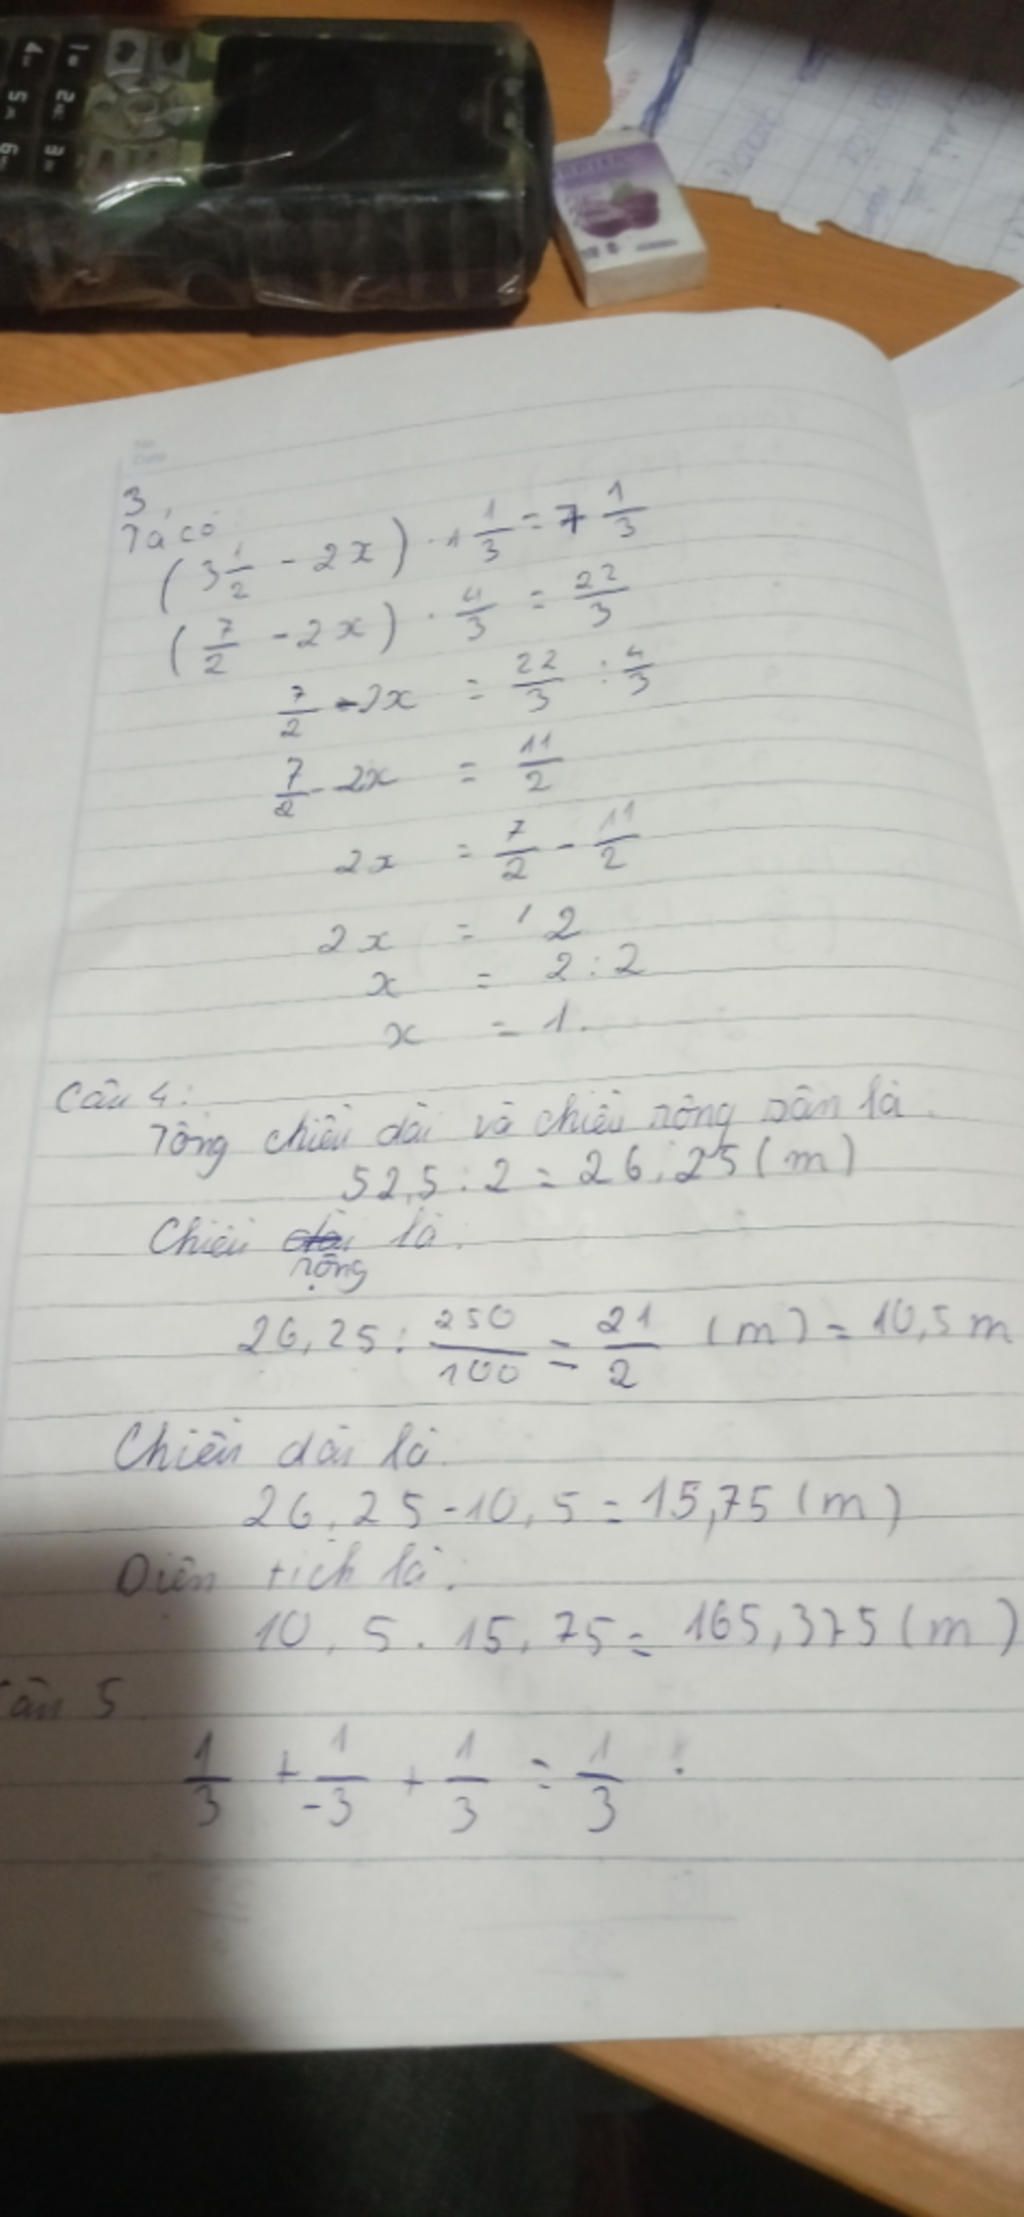 3,
Ta có
(3 1/2 - 2x) . 1 1/3 = 7 1/3
(7/2 - 2x) . 4/3 = 22/3
7/2 - 2x = 22/3 : 4/3
7/2 - 2x = 11/2
2x = 7/2 - 11/2
2x = ' 2
x = 2 : 2
x = 1.
Câu 4:
Tổng chiều dài và chiều rộng sân là
52,5 : 2 = 26,25 (m)
Chiều rộng là.
26,25 : 250/100 = 21/2 (m) = 10,5 m
Chiều dài là
26,25 - 10,5 = 15,75 (m)
Diện tích là.
10,5 . 15,75 = 165,375 (m)
Câu 5
1/3 + 1/-3 + 1/3 = 1/3 .